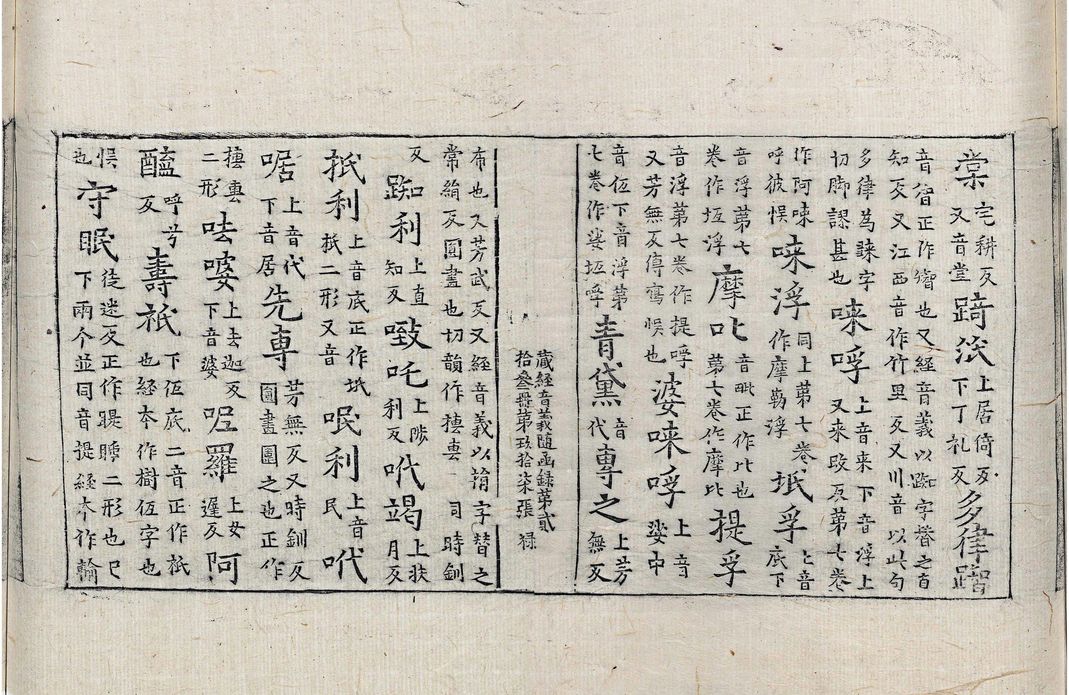 棠宅耕反又音堂踦泜上居倚反下丁礼反多律蹹
音智正作𧫚也又經音義以踟字替之音
知反又江西音作竹里反又川音以此句
多律為睞字
切脚謬甚也唻呼上音来下音浮上又来改反第七卷
作阿唻
呼彼悮唻浮同上第七卷作摩勒浮坻孚上音底下
音浮第七
卷作坘浮摩叱音毗正作比也第七卷作摩比提孚
音浮第七卷作提呼
又芳無反傳寫悮也婆唻呼上音娑中
音伍下音浮第
七卷作娑坘呼青黛音代専之上芳無反
藏經音義随函録第貳
拾叄冊第玖拾柒張 禄
布也又芳武反又經音義以簫字替之
常絹反圓畫也切韻作䡱𤰈 同時釧
反踟利上直知反㗧吒上陟利反吠竭上扶月反
抵利上音底正作坻抵二形又音民利上音民吠
㖵上音代下音居先専芳無反又時釧反圓畫圍之也正作
䡱專
二形呿㗑上去迦反下音婆𡰱羅上女遲反阿
醯呼兮反壽祇下伍底二音正作祇也經本作樹伍字也
悮
也守眠徒迷反正作睼䁯二形也已下兩个並同音提經本作輸